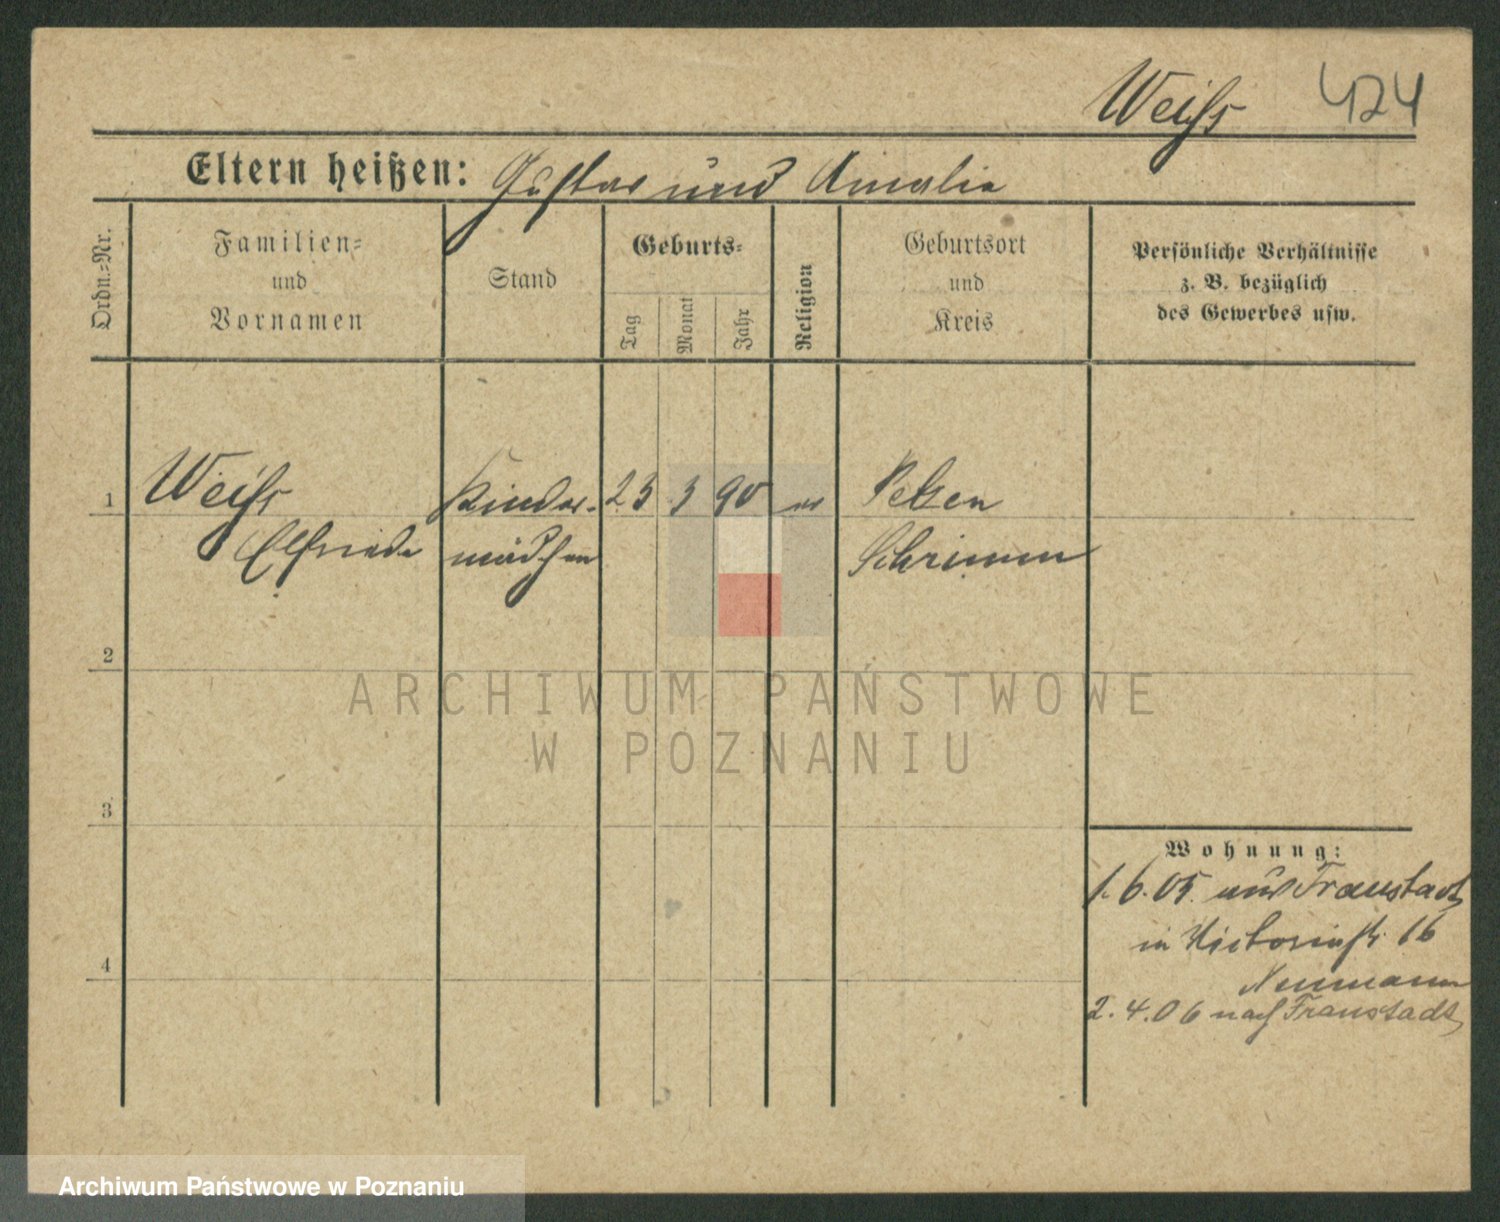 Weiß 424
Eltern heißen: Gustav und Amalie
Ordn.-Nr.
Familien-
und
Vornamen
Stand
Geburts-
Tag
Monat
Jahr
Religion
Geburtsort
und
Kreis
Persönliche Verhältnisse
z. B. bezüglich
des Gewerbes usw.
1 Weiß Kinder- 25 3 90 ev
Elfriede mädchen Schrimm
2
3
4
Wohnung:
1.6.05. aus Fraustadt
in Victoriastr 16
Neumann
2.4.06 nach Fraustadt
ARCHIWUM PAŃSTWOWE
W POZNANIU
Archiwum Państwowe w Poznaniu